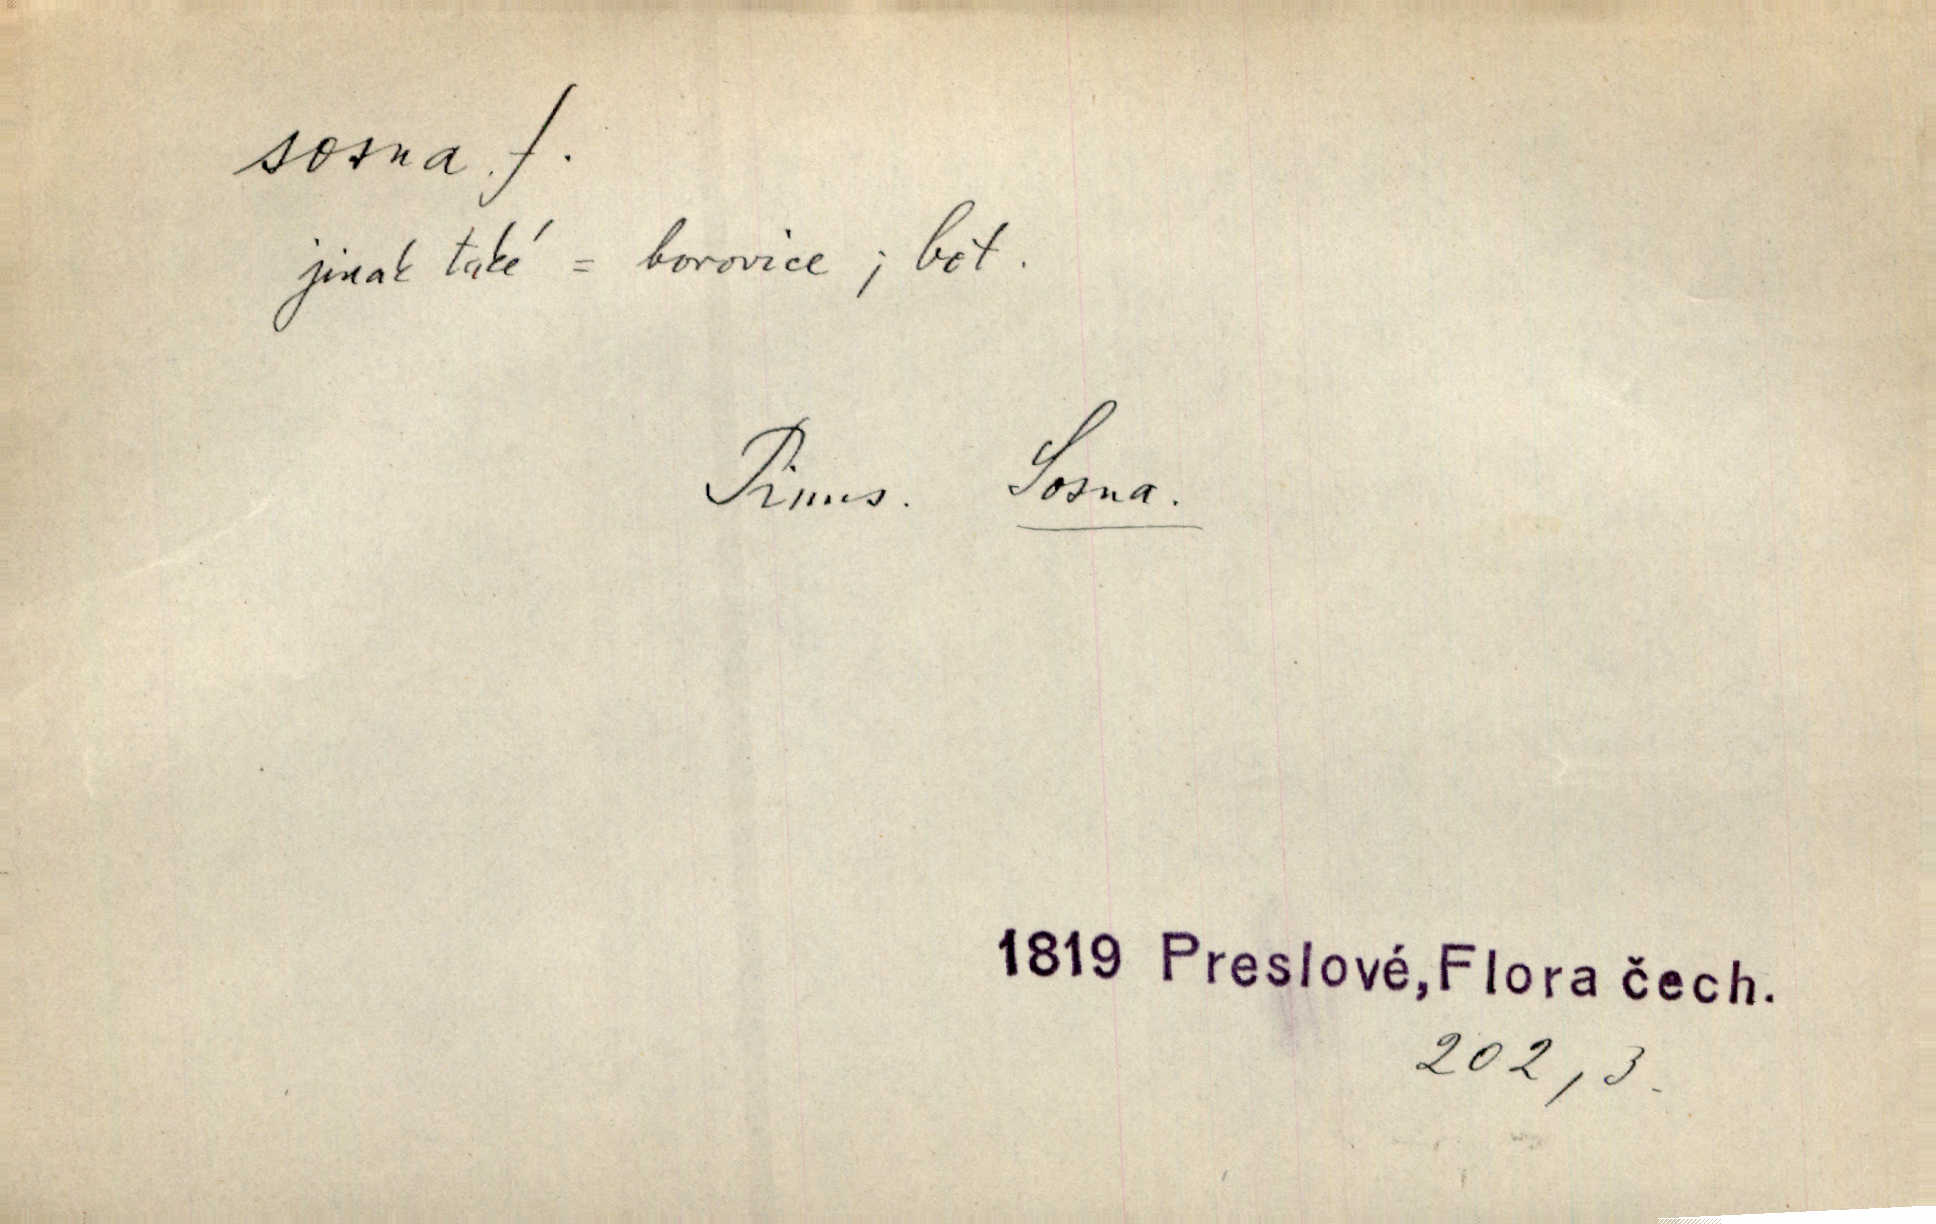 sosna f.
jinak také = borovice ; bot.
Pinus. Sosna.
1819 Preslové, Flora čech.
202, 3.